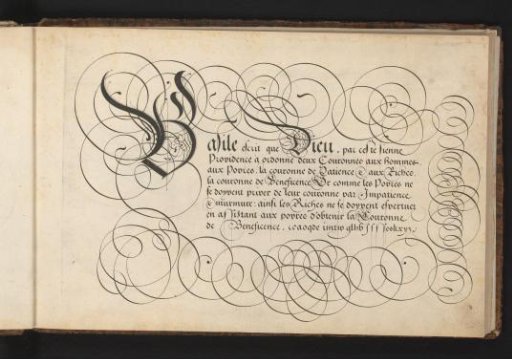 Basile escrit que Dieu, par ceste sienne
Providence a ordonné deux Couronnes aux hommes.
aux Povres, la couronne de Patience, & aux Riches
la couronne de Beneficence. Or comme les Povres ne
se doyvent priver de leur couronne par Impatience
& murmure: ainsi les Riches ne se doyvent esvertuer
en assistant aux povres d'obtenir la Couronne
de Beneficence.